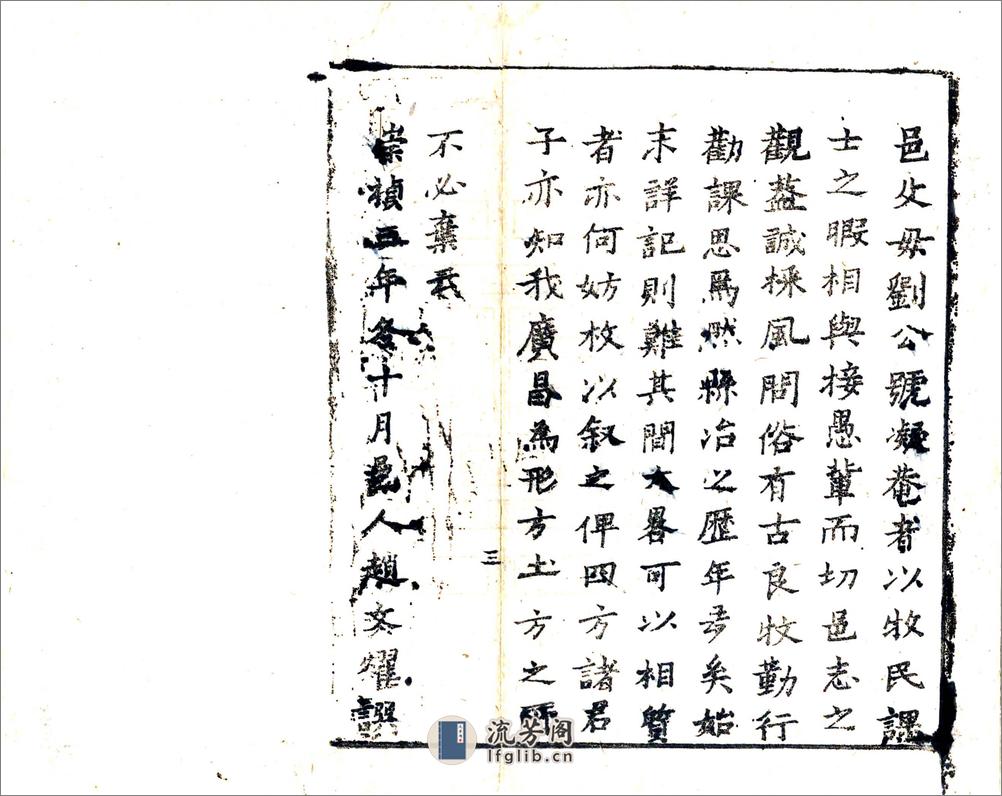 邑父毋劉公號凝菴者以牧民課
士之暇相與接愚軰而切邑志之
觀葢誠採風問俗有古良牧勤行
勸課思焉然縣治之歷年多矣始
末詳記則難其間大畧可以相質
者亦何妨枚以叙之俾四方諸君
子亦知我廣昌為形方土方之所
不必棄哉
崇禎五年冬十月邑人趙文耀譔
三
流芳阁
lfglib.cn